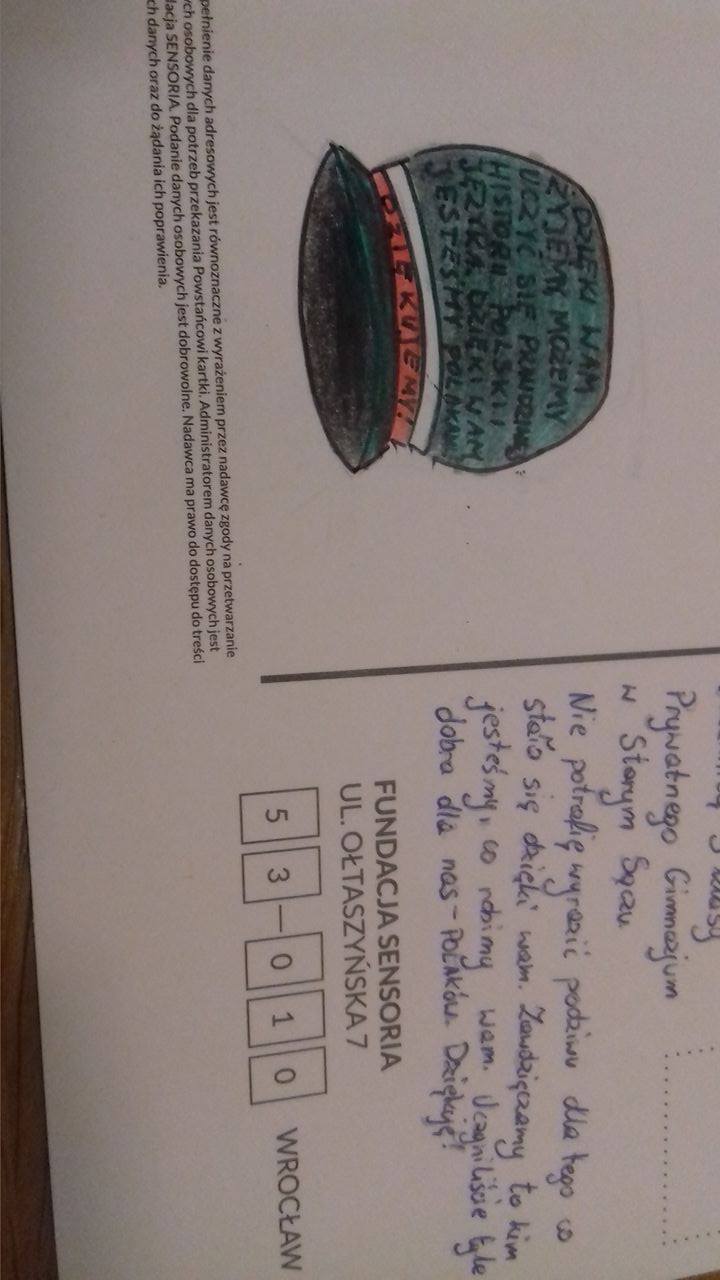 DZIĘKI WAM
ŻYJEMY, MOŻEMY
UCZYĆ SIĘ PRAWDZIWEJ
HISTORII POLSKI I
JĘZYKA. DZIĘKI WAM
JESTEŚMY POLAKAMI
DZIĘKUJEMY!
pełnienie danych adresowych jest równoznaczne z wyrażeniem przez nadawcę zgody na przetwarzanie
ych osobowych dla potrzeb przekazania Powstańcowi kartki. Administratorem danych osobowych jest
lacja SENSORIA. Podanie danych osobowych jest dobrowolne. Nadawca ma prawo do dostępu do treści
ch danych oraz do żądania ich poprawienia.
Prywatnego Gimnazjum
w Starym Sączu
Nie potrafię wyrazić podziwu dla tego co
stało się dzięki wam. Zawdzięczamy to kim
jesteśmy, co robimy wam. Uczyniliście tyle
dobra dla nas - POLAKÓW. Dziękuję!
FUNDACJA SENSORIA
UL. OŁTASZYŃSKA 7
53-010 WROCŁAW